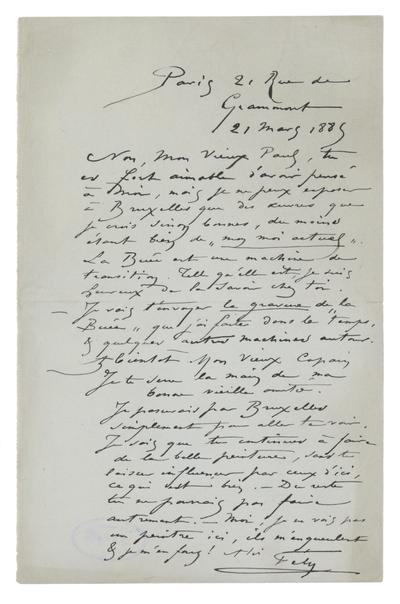 Paris 21 Rue de
Grammont
21 Mars 1885
Non, Mon Vieux Paul, tu
es fort aimable d'avoir pensé
à Moi, mais je ne peux exposer
à Bruxelles que des œuvres que
je crois sinon bonnes, du moins
étant bien de "mon moi actuel".
La Buée est une machine de
transition. Telle qu'elle est, je suis
heureux de la savoir chez toi.
— Je vais t'envoyer la gravure de "la
Buée" que j'ai faite dans le temps,
& quelques autres machines autour.
à bientôt Mon Vieux Copain
Je te serre la main de ma
bonne vieille amitié.
Je passerais par Bruxelles
simplement pour aller te voir.
Je sais que tu continues à faire
de la belle peinture, sans te
laisser influencer par ceux d'ici,
ce qui est bien. — Du reste
tu ne pouvais pas faire
autrement. — Moi, je ne vois pas
un peintre ici, ils m'engueulent
& je m'en fous!